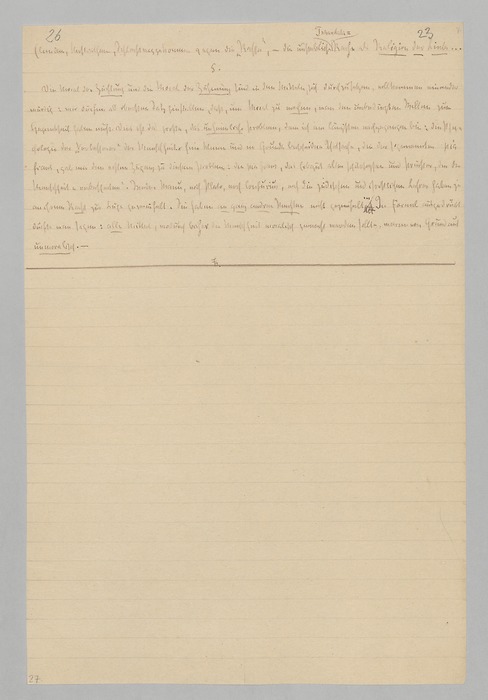 26 Tschandala- 23
Elenden, Mißrathenen, Schlechtweggekommenen gegen die „Rasse“, — die unsterbliche Rache als Religion der Liebe...
5.
Die Moral der Züchtung und die Moral der Zähmung sind in den Mitteln, sich durchzusetzen, vollkommen einander
würdig: wir dürfen als obersten Satz hinstellen, daß, um Moral zu machen, man den unbedingten Willen zum
Gegentheil haben muß. Dies ist das große, das unheimliche Problem, dem ich am längsten nachgegangen bin: die Psycho-
logie der „Verbesserer“ der Menschheit. Eine kleine und im Grunde bescheidne Thatsache, die der sogenannten pia
fraus, gab mir den ersten Zugang zu diesem Problem: die pia fraus, das Erbgut aller Philosophen und Priester, die die
Menschheit „verbesserten“. Weder Manu, noch Plato, noch Confucius, noch die jüdischen und christlichen Lehrer haben je
an ihrem Recht zur Lüge gezweifelt. Sie haben an ganz andren Rechten nicht gezweifelt In Formel ausgedrückt
dürfte man sagen: alle Mittel, wodurch bisher die Menschheit moralisch gemacht werden sollte, waren von Grund aus
unmoralisch. —
27